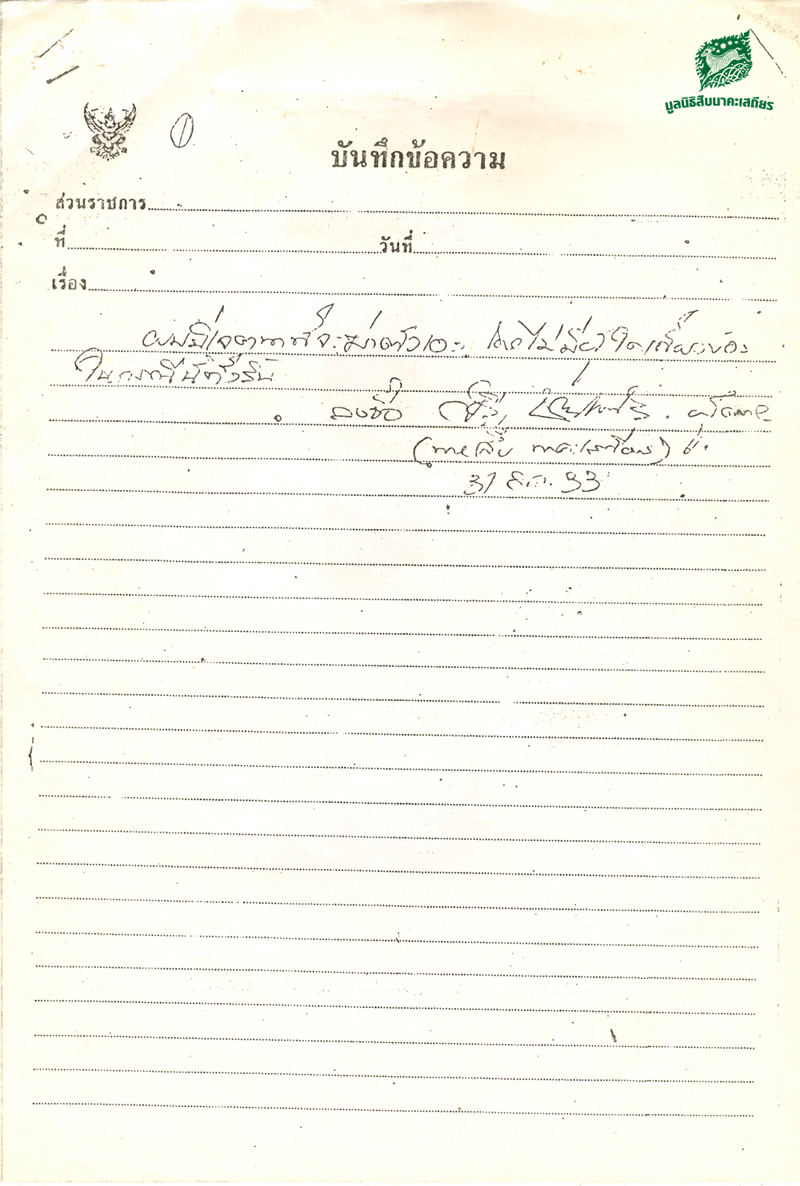 มูลนิธิสืบนาคะเสถียร
①
บันทึกข้อความ
ส่วนราชการ
ที่ วันที่
เรื่อง
ผมมีเจตนาที่จะฆ่าตัวเอง โดยไม่มีผู้ใดเกี่ยวข้อง
ในกรณีนี้ทั้งสิ้น
ลงชื่อ ผู้ตาย
(นายสืบ นาคะเสถียร)
31 ส.ค. 33